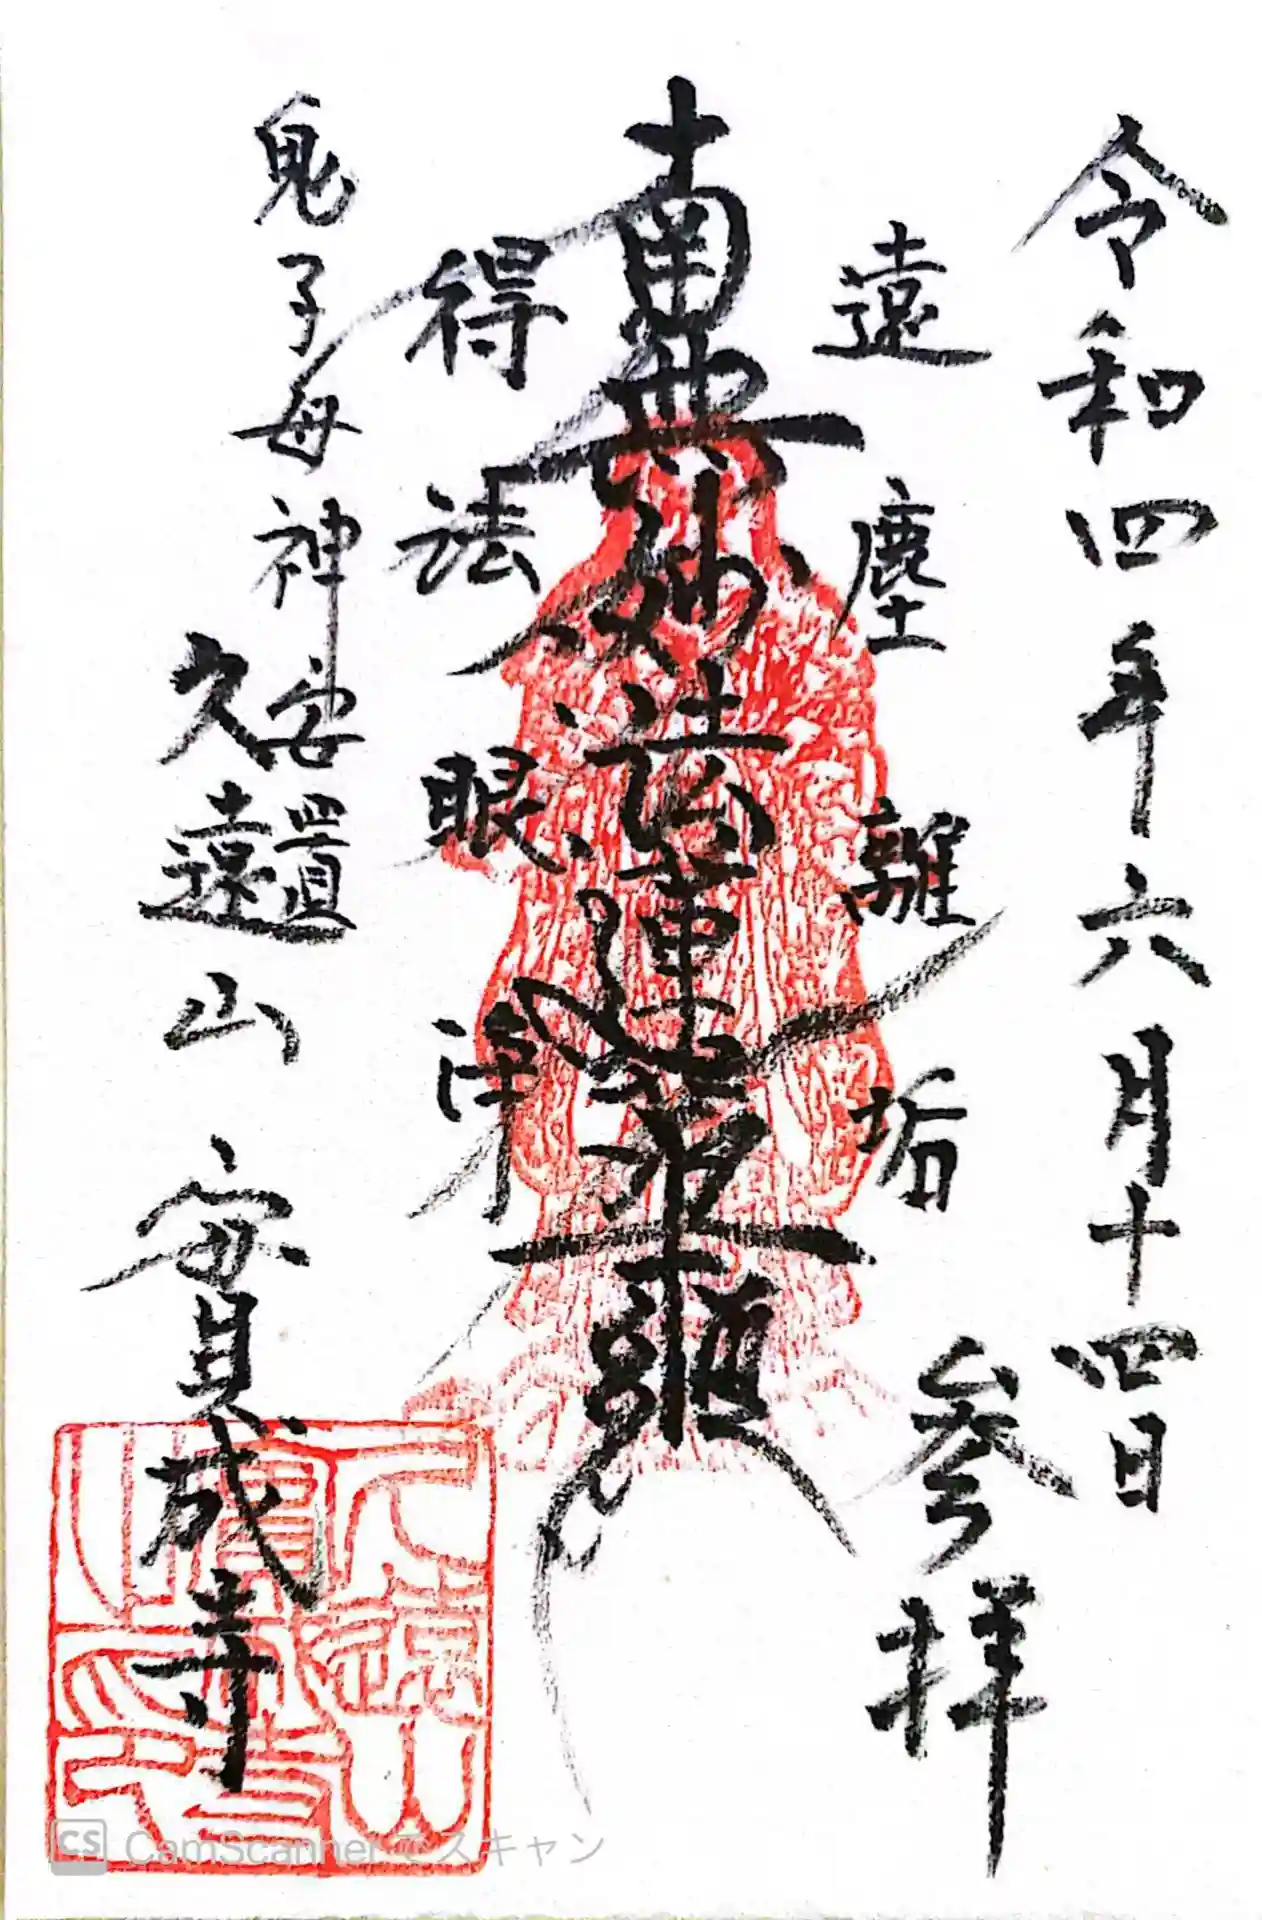 令和四年六月十四日
参拝
遠塵離垢
南無妙法蓮華經
得法眼浄
鬼子母神安置
久遠山 實成寺
CS CamScanner でスキャン